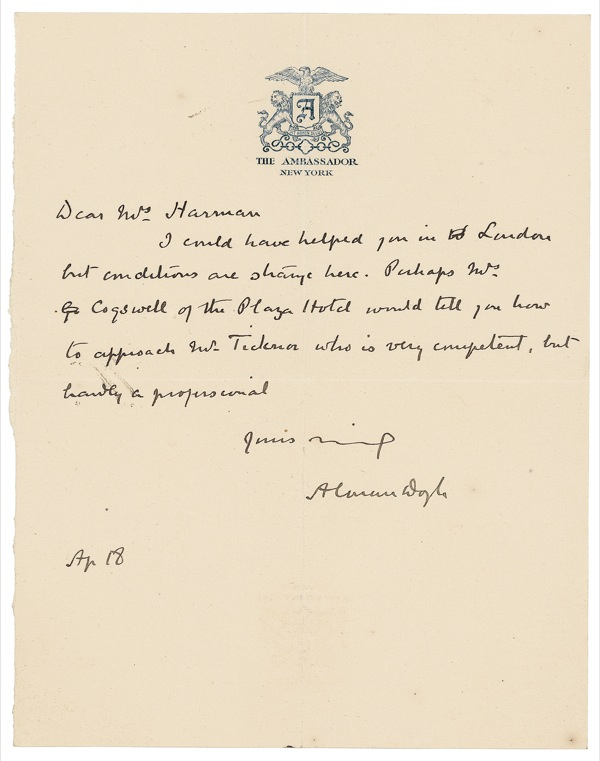 A
THE AMBASSADOR
NEW YORK
Dear Mrs Harman
I could have helped you in London
but conditions are strange here. Perhaps Mrs
Cogswell of the Plaza Hotel would tell you how
to approach Mr Ticknor who is very competent, but
hardly a professional
Yours sincerely
A Conan Doyle
Ap 18